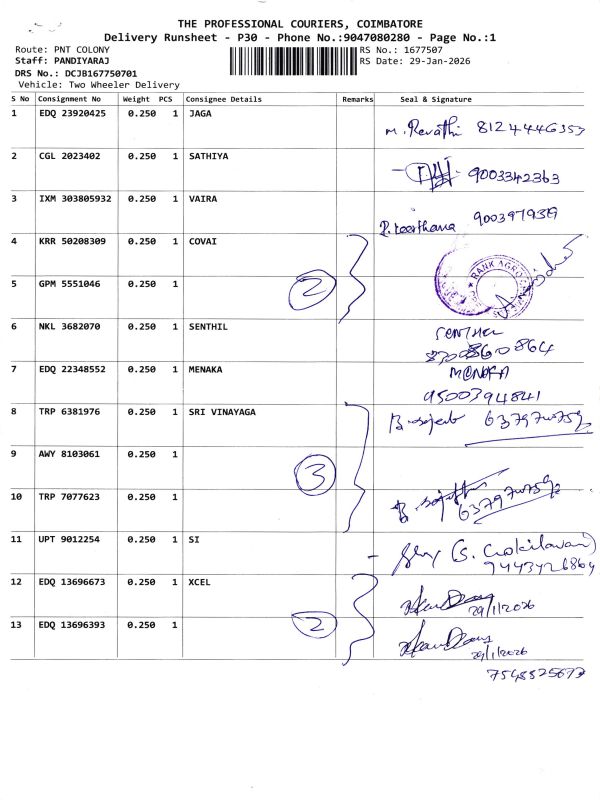 THE PROFESSIONAL COURIERS, COIMBATORE
Delivery Runsheet - P30 - Phone No.:9047080280 - Page No.:1
Route: PNT COLONY RS No.: 1677507
Staff: PANDIYARAJ RS Date: 29-Jan-2026
DRS No.: DCJB167750701
Vehicle: Two Wheeler Delivery
S No Consignment No Weight PCS Consignee Details Remarks Seal & Signature
1 EDQ 23920425 0.250 1 JAGA
M. Revathi 8124446353
2 CGL 2023402 0.250 1 SATHIYA
9003342363
3 IXM 303805932 0.250 1 VAIRA
P. keerthana
4 KRR 50208309 0.250 1 COVAI
RANK AGRO
5 GPM 5551046 0.250 1 2
6 NKL 3682070 0.250 1 SENTHIL
8700860864
7 EDQ 22348552 0.250 1 MENAKA
MENAKA
9500394841
8 TRP 6381976 0.250 1 SRI VINAYAGA
9 AWY 8103061 0.250 1 3
10 TRP 7077623 0.250 1
11 UPT 9012254 0.250 1 SI
(S. Gokilavani)
9443426869
12 EDQ 13696673 0.250 1 XCEL
29/1/2026
13 EDQ 13696393 0.250 1 2
29/1/2026
7548825673